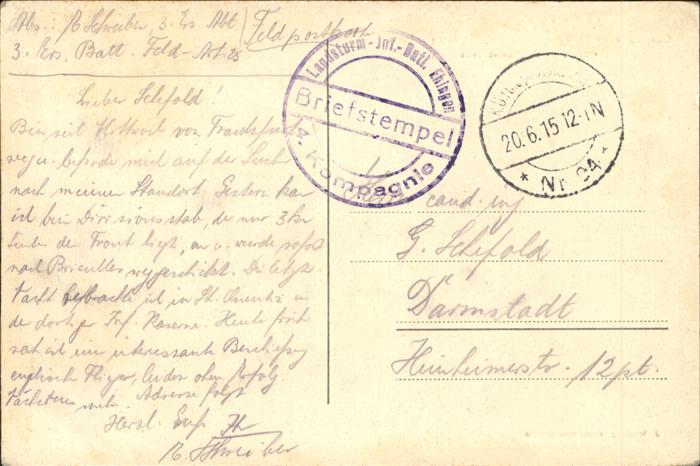 Abs.: R. Schreiber, 3. Ers. Abt.
3. Ers. Batt. Feld-Art. 25
Feldpostkarte
Landsturm-Inf.-Batl. Ehingen
Briefstempel
4. Kompagnie
20.6.15 12-1N
* Nr. 24 *
Lieber Schefold!
Bin seit Mittwoch von
befinde mich auf der Suche
nach meinem Standort. Gestern kam
ich beim Divisionsstab, der nur 3 km
hinter der Front liegt, an u. wurde sofort
nach Brieulles weggeschickt. Die letzte
Nacht verbrachte ich in St. Quentin in
der dortigen Inf. Kaserne. Heute früh
sah ich eine interessante Beschießung
englischer Flieger, leider ohne Erfolg.
Nächstens mehr. Adresse folgt
Herzl. Gruß Ihr
R. Schreiber
cand. ing
G. Schefold
Darmstadt
Heinheimerstr. 12 pt.